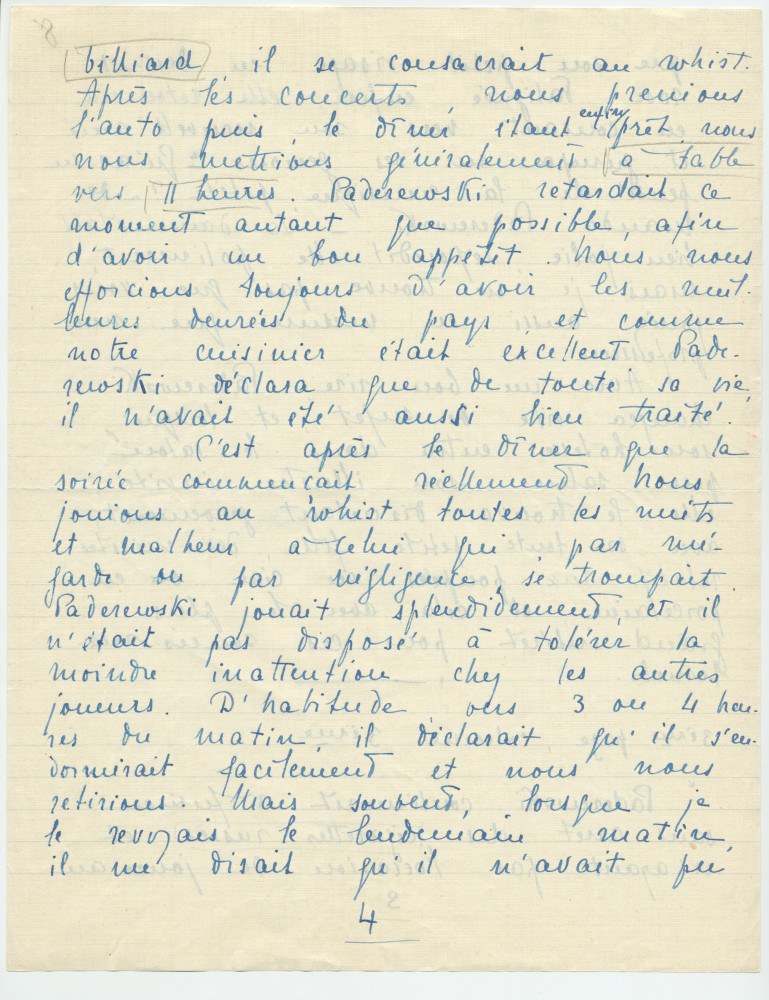 billiard il se consacrait au whist.
Après les concerts, nous prenions
l'auto puis, le dîner étant enfin prêt, nous
nous mettions généralement à table
vers 11 heures. Paderewski retardait ce
moment autant que possible, afin
d'avoir un bon appétit. Nous nous
efforcions toujours d'avoir les meil-
leures denrées du pays et comme
notre cuisinier était excellent Pade-
rewski déclara que de toute sa vie,
il n'avait été aussi bien traité.
C'est après le dîner que la
soirée commençait réellement. Nous
jouions au whist toutes les nuits
et malheur à celui qui par mé-
garde ou par négligence, se trompait.
Paderewski jouait splendidement, et il
n'était pas disposé à tolérer la
moindre inattention chez les autres
joueurs. D'habitude vers 3 ou 4 heu-
res du matin, il déclarait qu'il s'en-
dormirait facilement et nous nous
retirions. Mais souvent, lorsque je
le revoyais le lendemain matin,
il me disait qu'il n'avait pu
4